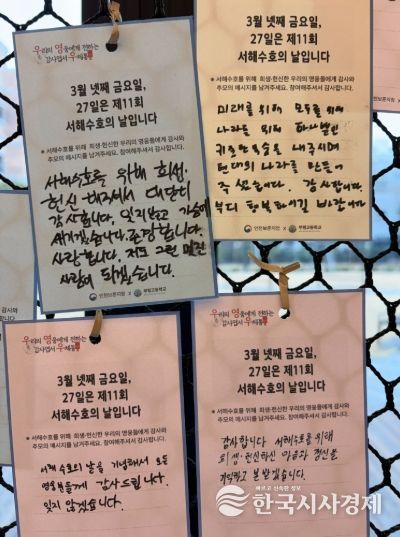 우리의 영웅에게 전하는
감사엽서 우체통
3월 넷째 금요일,
27일은 제11회
서해수호의 날입니다
● 서해수호를 위해 희생·헌신한 우리의 영웅들에게 감사와
추모의 메시지를 남겨주세요. 참여해주셔서 감사합니다.
서해수호를 위해 희생,
헌신 해주셔서 대단히
감사합니다. 잊지않고 가슴에
새기겠습니다. 존경합니다.
사랑합니다. 저도 그런 멋진
사람이 되겠습니다.
인천보훈지청 X 부평고등학교
3월 넷째 금요일,
27일은 제11회
서해수호의 날입니다
● 서해수호를 위해 희생·헌신한 우리의 영웅들에게 감사와
추모의 메시지를 남겨주세요. 참여해주셔서 감사합니다.
미래를 위해 모두를 위해
나라를 위해 하나뿐인
귀중한 목숨을 내주시며
현대의 나라를 만들어
주셨습니다. 감사합니다.
부디 행복하시길 바랍니다
인천보훈지청 X 부평고등학교
우리의 영웅에게 전하는
감사엽서 우체통
3월 넷째 금요일,
27일은 제11회
서해수호의 날입니다
● 서해수호를 위해 희생·헌신한 우리의 영웅들에게 감사와
추모의 메시지를 남겨주세요. 참여해주셔서 감사합니다.
서해 수호의 날을 기념해서 모든
영웅분들께 감사드립니다.
잊지 않겠습니다.
우리의 영웅에게 전하는
감사엽서 우체통
3월 넷째 금요일,
27일은 제11회
서해수호의 날입니다
● 서해수호를 위해 희생·헌신한 우리의 영웅들에게 감사와
추모의 메시지를 남겨주세요. 참여해주셔서 감사합니다.
감사합니다 서해수호를 위해
희생·헌신하신 마음과 정신을
기억하고 본받겠습니다.
빠르고 신속한 정보
한국시사경제